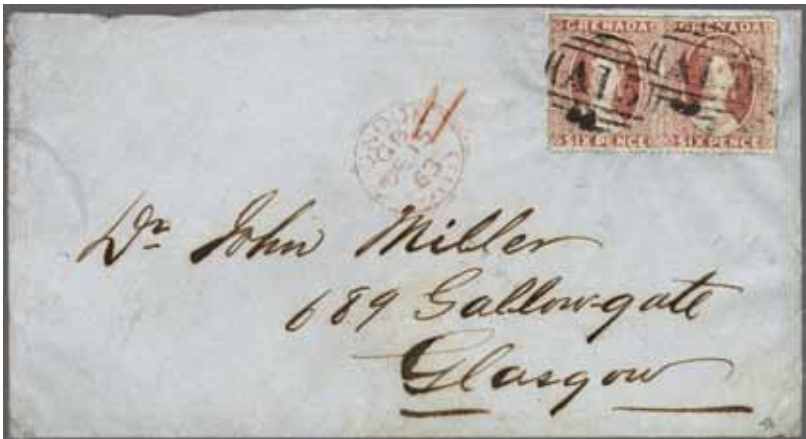 GRENADA GRENADA
A15 A1
SIX PENCE SIX PENCE
LONDON
63
Dr John Miller
689 Gallowgate
Glasgow